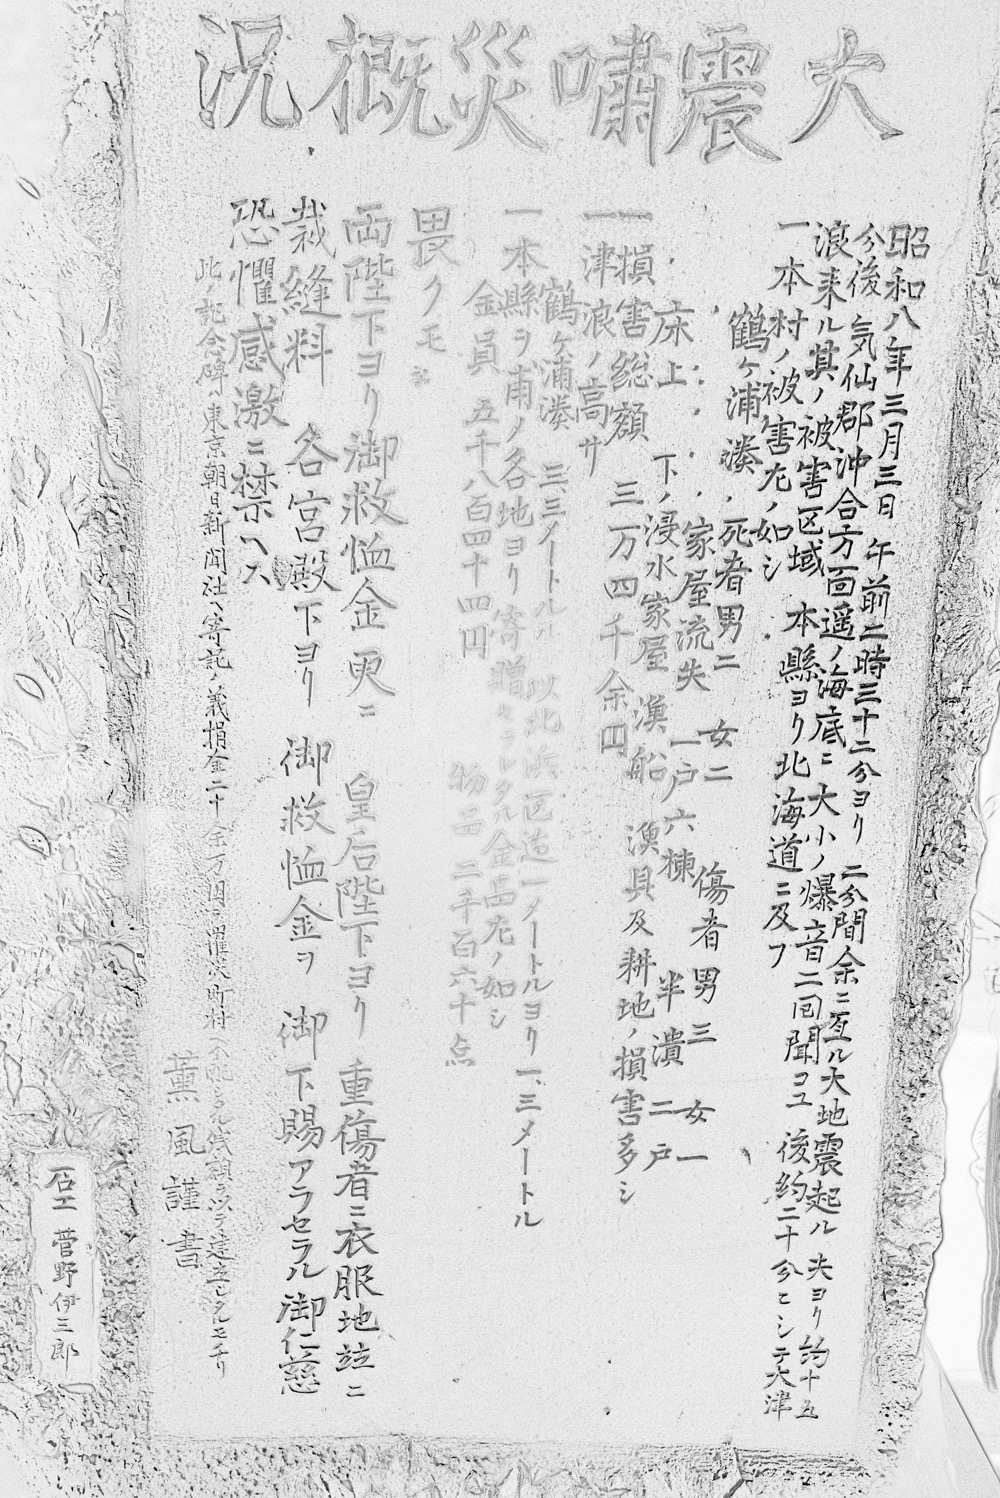 大震嘯災概況
昭和八年三月三日 午前二時三十二分ヨリ 二分間余ニ亙ル大地震起ル 夫ヨリ約十五
分後 気仙郡沖合方面遥ノ海底ニ大小ノ爆音二回聞コユ 後約二十分ニシテ大津
浪来ル其ノ被害区域 本縣ヨリ北海道ニ及フ
一本村ノ被害左ノ如シ
鶴ヶ浦湊 死者男二 女二 傷者男三 女一
家屋流失 一戸六棟 半潰 二戸
床上 下ノ浸水家屋 漁船 漁具及耕地ノ損害多シ
一損害総額 三万四千余円
一津浪ノ高サ
鶴ヶ浦湊 三、三メートル 以北浜 一メートルヨリ一、三メートル
一本縣ヲ用ノ各地ヨリ寄贈セラレタル金品左ノ如シ
金員 五千八百四十四円 物品 二千百六十点
畏クモ
両陛下ヨリ御救恤金更ニ 皇后陛下ヨリ 重傷者ニ衣服地竝ニ
裁縫料 各宮殿下ヨリ 御救恤金ヲ 御下賜アラセラル御仁慈
恐懼感激ニ禁ヘス
此ノ記念碑ハ東京朝日新聞社ヘ寄託ノ義捐金二十余万円ヲ罹災町村ヘ分配シ残額ヲ以テ建立シタルモナリ
薫風謹書
石工 菅野伊三郎